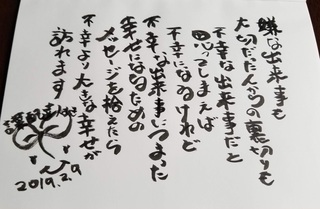 嫌な出来事も
大切だった人からの裏切りも
不幸な出来事だと
思ってしまえば
不幸になるけれど
不幸な出来事につまった
幸せになるための
メッセージを拾えたら
不幸より大きな幸せが
訪れます
2019.2.9